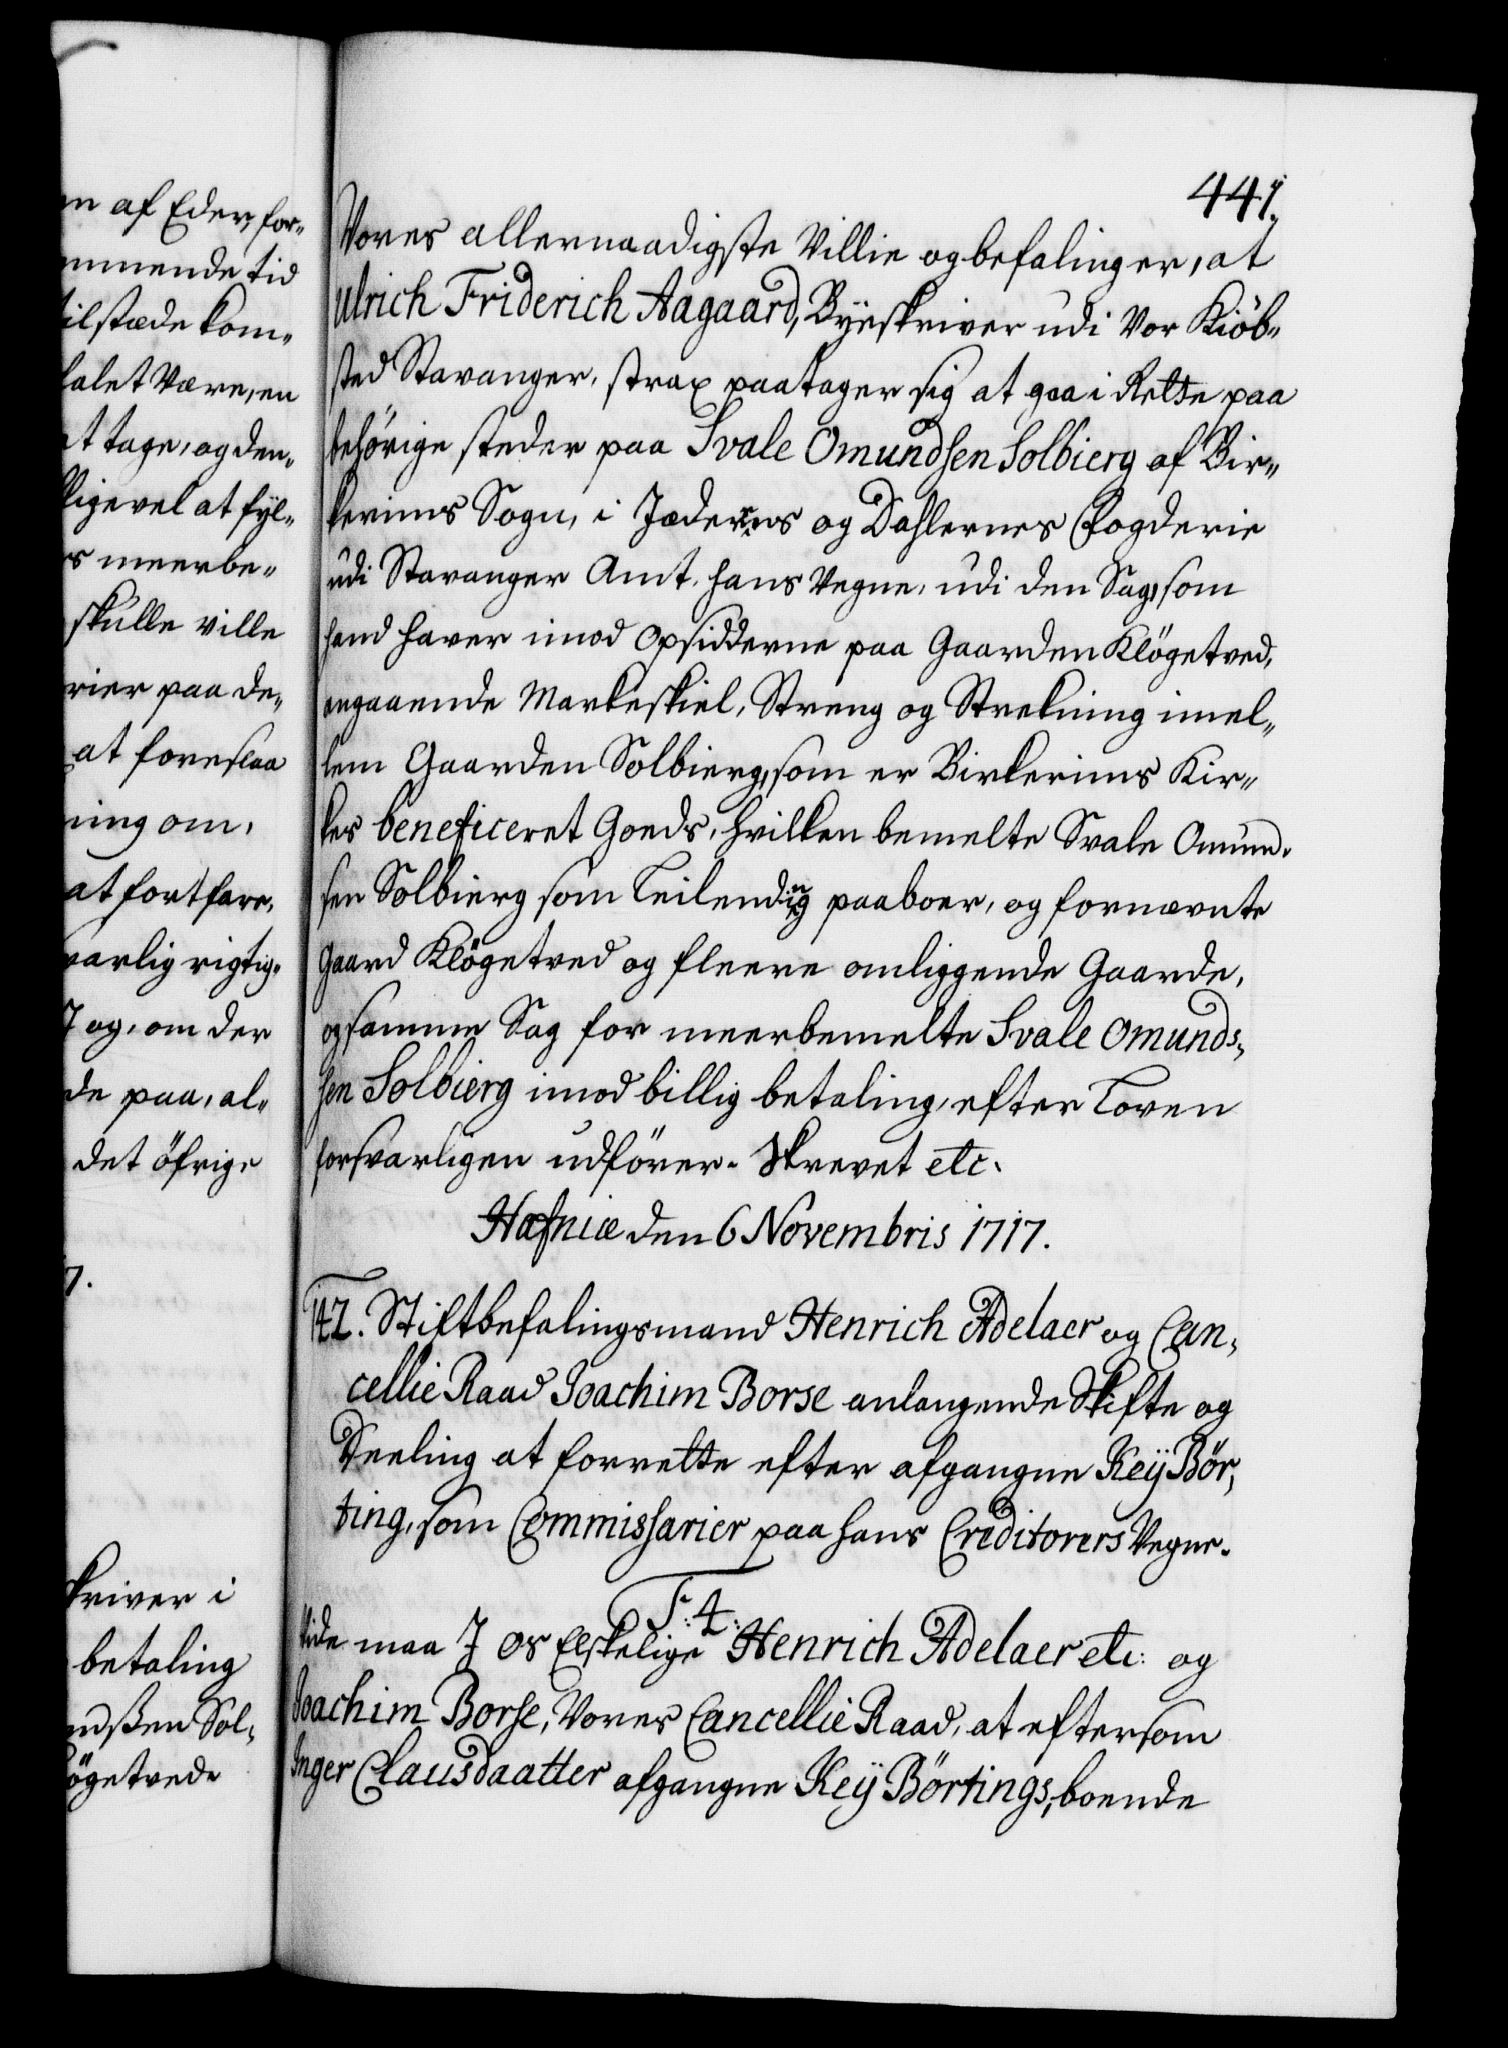 en af Eder, for-
ommende tid
tilstæde kom-
falet være, en
at tage, og den-
lligevel at fÿl-
rs meerbe-
skulle ville
rier paa de-
at foreslaa
ning om,
at fortfare,
varlig rigtig-
J og, om der
de paa, al-
det öfrige
7.
skriver i
betaling
undßen Sol-
lögetvede
441.
Vores allernaadigste Villie og befalinger, at
Ulrich Friderich Aagaard, Byeskriver udi Vor Kiöb-
sted Stavanger, strax paatager sig at gaa i Rette paa
behörige steder paa Svale Omundsen Solbierg af Bir-
kerims Sogn, i Jæderens og Dahlernes Fogderie
udi Stavanger Amt, hans Vegne, udi den Sag, som
hand haver imod Opsidderne paa Gaarden Klögetved,
angaaende Markeskiel, Streng og Strekning imel-
lem Gaarden Solbierg, som er Birkerims Kir-
kes beneficeret Goeds, hvilken bemelte Svale Omund-
sen Solbierg som Leilending paaboer, og fornævnte
Gaard Klögetved og fleere omliggende Gaarde,
og samme Sag for meerbemelte Svale Omunds-
sen Solbierg imod billig betaling, efter Loven
forsvarligen udförer. Skrevet etc.
Hafniæ den 6 Novembris 1717.
142. Stiftbefalingsmand Henrich Adelaer og Can-
cellie Raad Joachim Borse anlangende Skifte og
Deeling at forrette efter afgangne Keÿ Bör-
ting, som Commissarier paa hans Creditorers Vegne.
F. 4.
Vide maa J os Elskelige Henrich Adelaer etc: og
Joachim Borse, Vores Cancellie Raad, at eftersom
Inger Clausdaatter afgangne Keÿ Börtings, boende